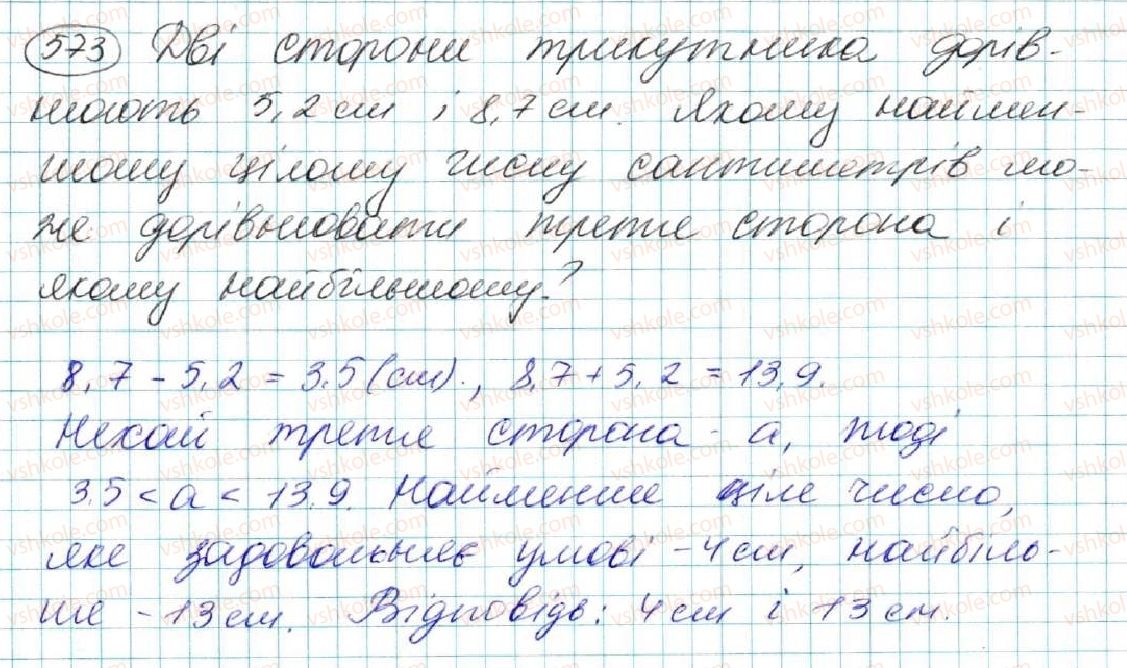 573 Дві сторони трикутника дорів-
нюють 5,2 см і 8,7 см. Якому наймен-
шому цілому числу сантиметрів мо-
же дорівнювати третя сторона і
якому найбільшому?
8,7 - 5,2 = 3,5 (см)., 8,7 + 5,2 = 13,9.
Нехай третя сторона - a, тоді
3,5 < a < 13,9. Найменше ціле число,
яке задовольняє умові - 4 см, найбіль-
ше - 13 см. Відповідь: 4 см і 13 см.